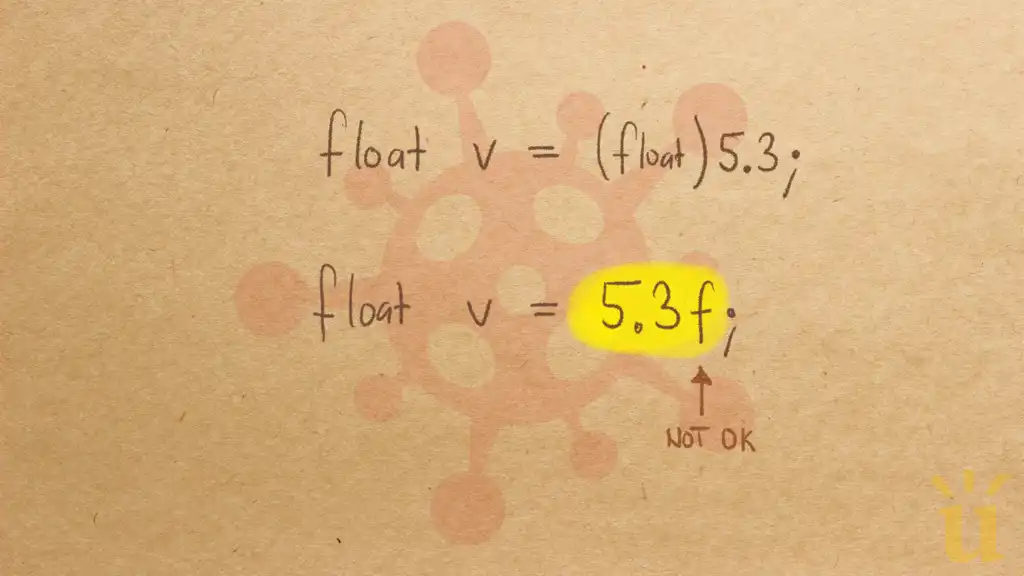 float v = (float)5.3;
float v = 5.3f;
↑
NOT OK
ü